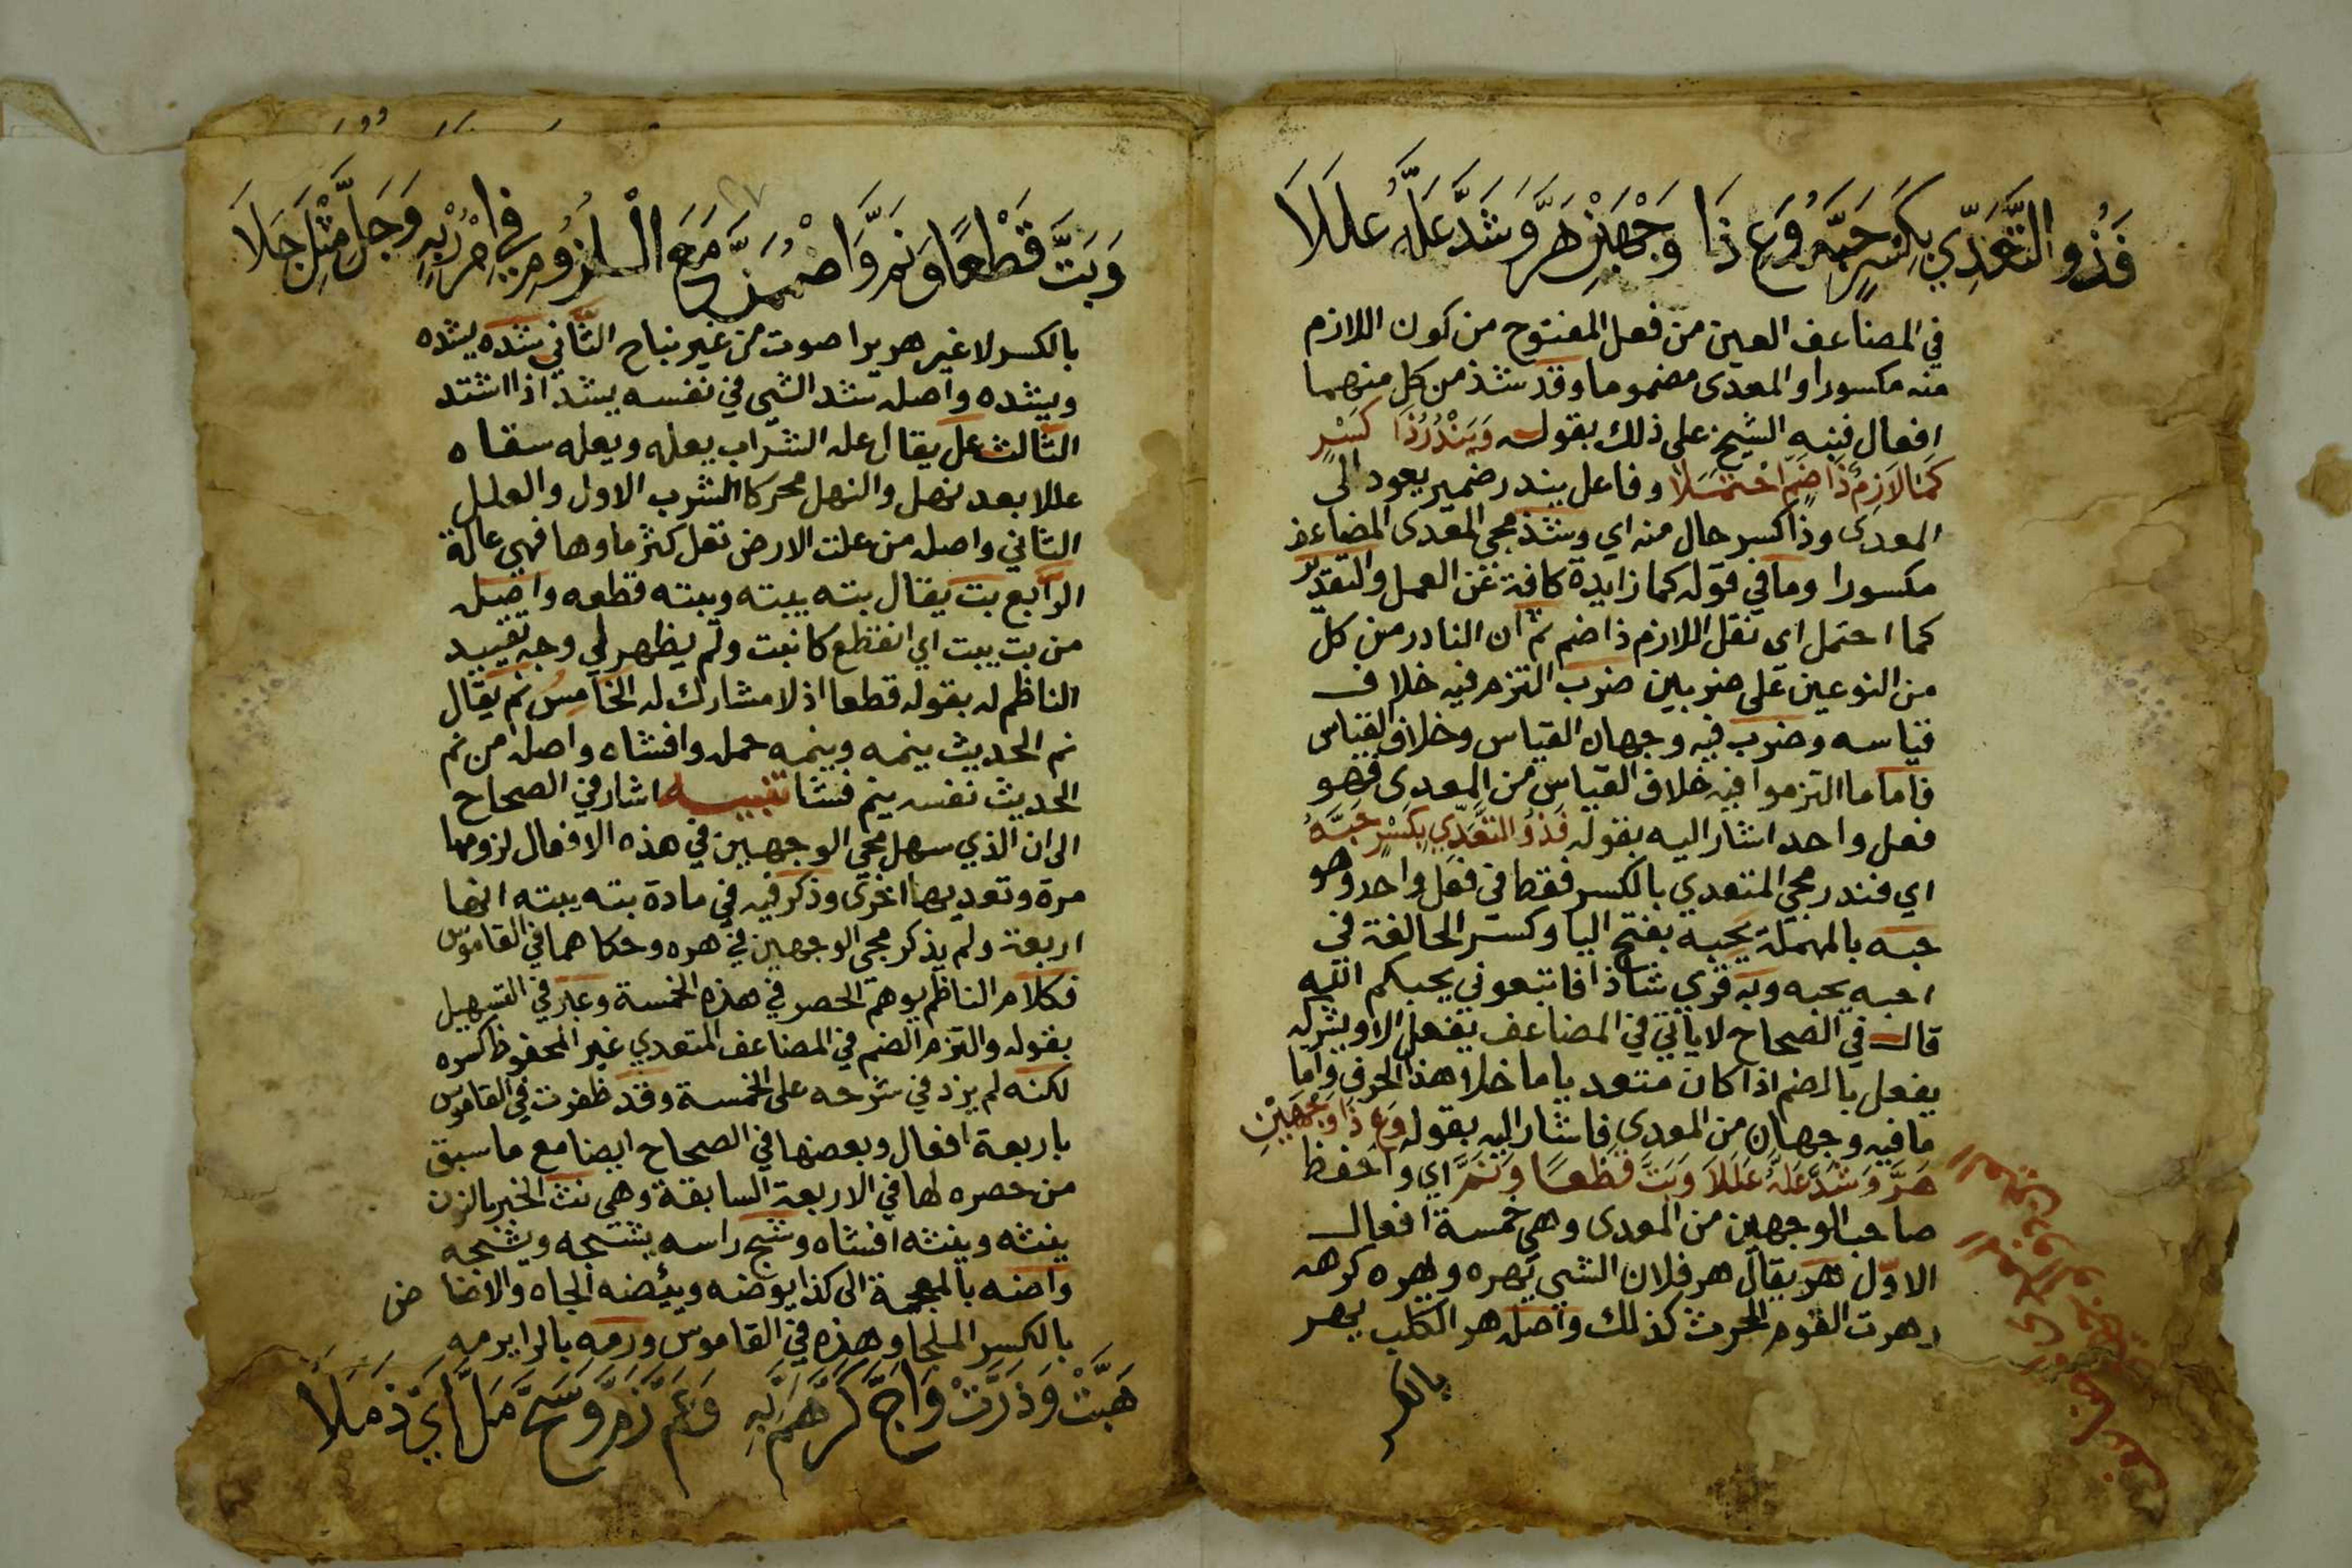 فَذُو التَّعَدِّي بِكَسْرٍ حَبَّهُ وَعِ ذَا وَجْهَيْنِ هَرَّ وَشَدَّ عَلَّهُ عَلَلَا
في المضاعف العين من فعل المفتوح من كون اللازم
منه مكسورا والمعدى مضموما وقد شذ من كل منهما
افعال فنبه الشيخ على ذلك بقوله وَيَنْدُرُ ذَا كَسْرٍ
كَمَا لَازِمٌ ذَا ضَمٍّ احْتَمَلَا وفاعل يندر ضمير يعود الى
المعدى وذا كسر حال منه اي وشذ مجي المعدى المضاعف
مكسورا وما في قوله كما زايدة كافة عن العمل والتقدير
كما احتمل اي نقل اللازم ذا ضم ثم ان النادر من كل
من النوعين على ضربين ضرب التزم فيه خلاف
قياسه وضرب فيه وجهان القياس وخلاف القياس
فاما ما التزموا فيه خلاف القياس من المعدى فهو
فعل واحد اشار اليه بقوله فَذُو التَّعَدِّي بِكَسْرٍ حَبَّهُ
اي فندر مجي المتعدي بالكسر فقط في فعل واحد وهو
حبه بالمهملة يحبه بفتح اليا وكسر الحا لغة في
احبه يحبه وبه قري شاذا فاتبعوني يحبكم الله
قال في الصحاح لا ياتي في المضاعف يفعل الا ويشركه
يفعل بالضم اذا كان متعد يا ما خلا هذا الحرف واما
ما فيه وجهان من المعدى فاشار اليه بقوله وَعِ ذَا وَجْهَيْنِ
هَرَّ وَشَدَّ عَلَّهُ عَلَلَا وَبَتَّ قَطْعًا وَنَمَّ اي واحفظ
صاحب الوجهين من المعدى وهي خمسة افعال
الاول هر يقال هر فلان الشي يهره ويهره كرهه
وهرت القوم الحرث كذلك واصله هر الكلب يهر
بالكسر
وَبَتَّ قَطْعًا وَنَمَّ وَاضْمُمَنَّ مَعَ الْلُزُومِ فِي امْرُرْ بِهِ وَجَلَّ مِثْلَ جَلَا
بالكسر لا غير هريرا صوت من غير نباح الثاني شده يشده
ويشده واصله شد الشي في نفسه يشد اذا اشتد
الثالث عل يقال عله الشراب يعله ويعله سقاه
عللا بعد نهل والنهل محركا الشرب الاول والعلل
الثاني واصله من علت الارض تعل كثر ماوها فهي عالة
الرابع بت يقال بته يبته ويبته قطعه واصله
من بت يبت اي انقطع كانبت ولم يظهر لي وجه تقييد
الناظم له بقوله قطعا اذ لا مشارك له الخامس نم يقال
نم الحديث ينمه وينمه حمل وافشاه واصله من نم
الحديث نفسه ينم فشا تنبيه اشار في الصحاح
الى ان الذي سهل مجي الوجهين في هذه الافعال لزومها
مرة وتعديها اخرى وذكر فيه في مادة بته يبته انها
اربعة ولم يذكر مجي الوجهين في هره وحكاهما في القاموس
فكلام الناظم يوهم الحصر في هذه الخمسة وعبر في التسهيل
بقوله والتزم الضم في المضاعف المتعدي غير المحفوظ كسره
لكنه لم يزد في شرحه على الخمسة وقد ظفرت في القاموس
باربعة افعال وبعضها في الصحاح ايضا مع ما سبق
من حصره لها في الاربعة السابقة وهي نث الخبر بالنون
ينثه وينثه افشاه وشج راسه يشجه ويشجه
واضه بالمعجمة الى كذا يوضه ويئضه الجاه والاضا ض
بالكسر الملجا وهذه في القاموس ورمه بالرا يرمه
هَبَّتْ وَذَرَّتْ وَاَجَّ كَرَّ هَمَّ بِهِ وَعَمَّ زَمَّ وَسَحَّ مَلَّ اَيْ ذَمَلَا